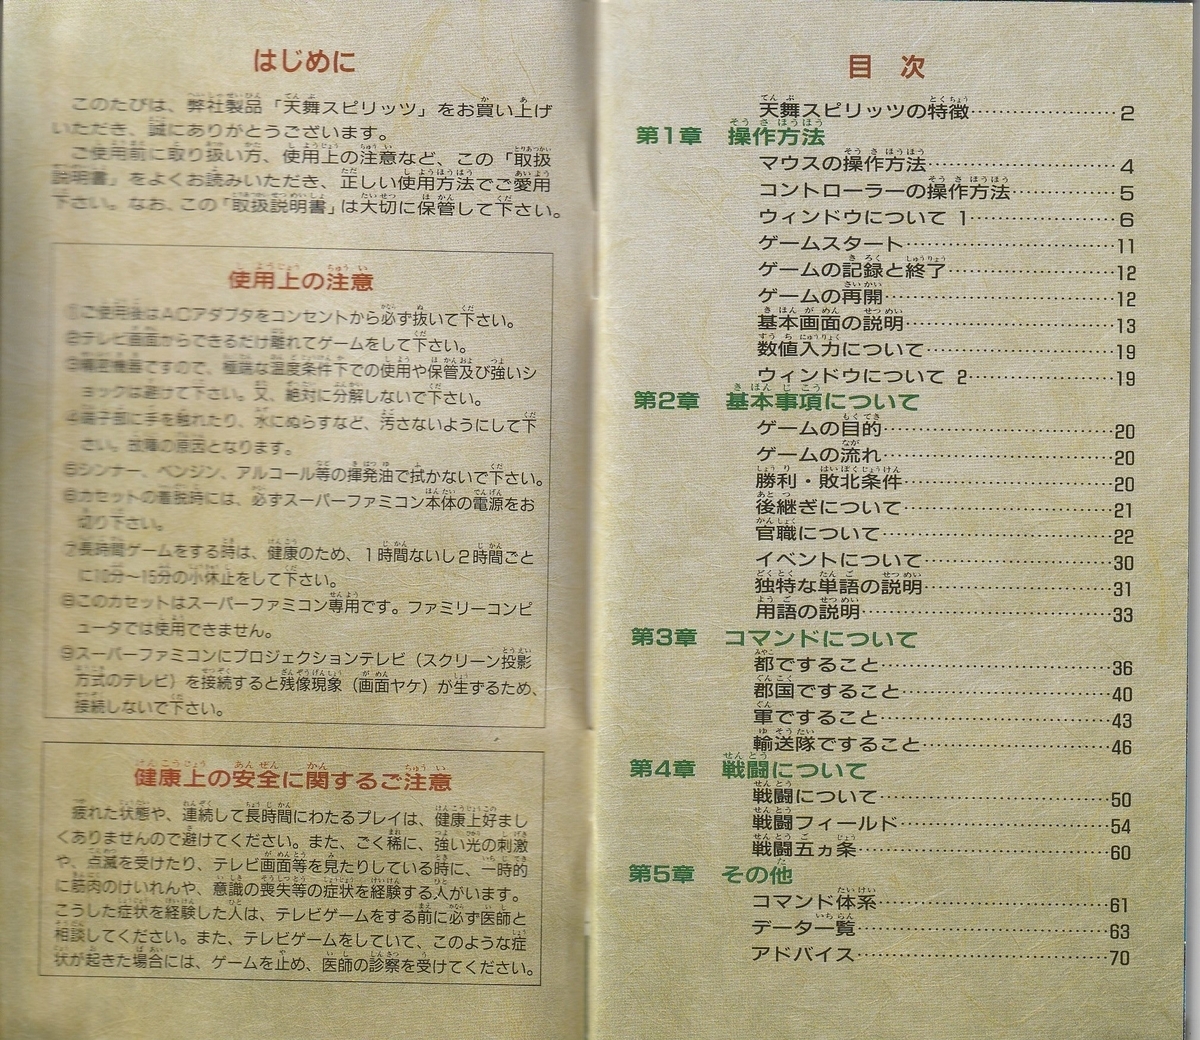 はじめに
このたびは、弊社製品「天舞スピリッツ」をお買い上げ
いただき、誠にありがとうございます。
ご使用前に取り扱い方、使用上の注意など、この「取扱
説明書」をよくお読みいただき、正しい使用方法でご愛用
下さい。なお、この「取扱説明書」は大切に保管して下さい。
使用上の注意
①ご使用後はACアダプタをコンセントから必ず抜いて下さい。
②テレビ画面からできるだけ離れてゲームをして下さい。
③精密機器ですので、極端な温度条件下での使用や保管及び強いシ
ョックは避けて下さい。又、絶対に分解しないで下さい。
④端子部に手を触れたり、水にぬらすなど、汚さないようにして下
さい。故障の原因となります。
⑤シンナー、ベンジン、アルコール等の揮発油で拭かないで下さい。
⑥カセットの着脱時には、必ずスーパーファミコン本体の電源をお
切り下さい。
⑦長時間ゲームをする時は、健康のため、1時間ないし2時間ごと
に10分〜15分の小休止をして下さい。
⑧このカセットはスーパーファミコン専用です。ファミリーコンピ
ュータでは使用できません。
⑨スーパーファミコンにプロジェクションテレビ（スクリーン投影
方式のテレビ）を接続すると残像現象（画面ヤケ）が生ずるため、
接続しないで下さい。
健康上の安全に関するご注意
疲れた状態や、連続して長時間にわたるプレイは、健康上好まし
くありませんので避けてください。また、ごく稀に、強い光の刺激
や、点滅を受けたり、テレビ画面等を見たりしている時に、一時的
に筋肉のけいれんや、意識の喪失等の症状を経験する人がいます。
こうした症状を経験した人は、テレビゲームをする前に必ず医師と
相談してください。また、テレビゲームをしていて、このような症
状が起きた場合には、ゲームを止め、医師の診察を受けてください。
目 次
天舞スピリッツの特徴……………………2
第1章 操作方法
マウスの操作方法……………………4
コントローラーの操作方法……………………5
ウィンドウについて 1……………………6
ゲームスタート……………………11
ゲームの記録と終了……………………12
ゲームの再開……………………12
基本画面の説明……………………13
数値入力について……………………19
ウィンドウについて 2……………………19
第2章 基本事項について
ゲームの目的……………………20
ゲームの流れ……………………20
勝利・敗北条件……………………20
後継ぎについて……………………21
官職について……………………22
イベントについて……………………30
独特な単語の説明……………………31
用語の説明……………………33
第3章 コマンドについて
都ですること……………………36
郡国ですること……………………40
軍ですること……………………43
輸送隊ですること……………………46
第4章 戦闘について
戦闘について……………………50
戦闘フィールド……………………54
戦闘五ヵ条……………………60
第5章 その他
コマンド体系……………………61
データ一覧……………………63
アドバイス……………………70